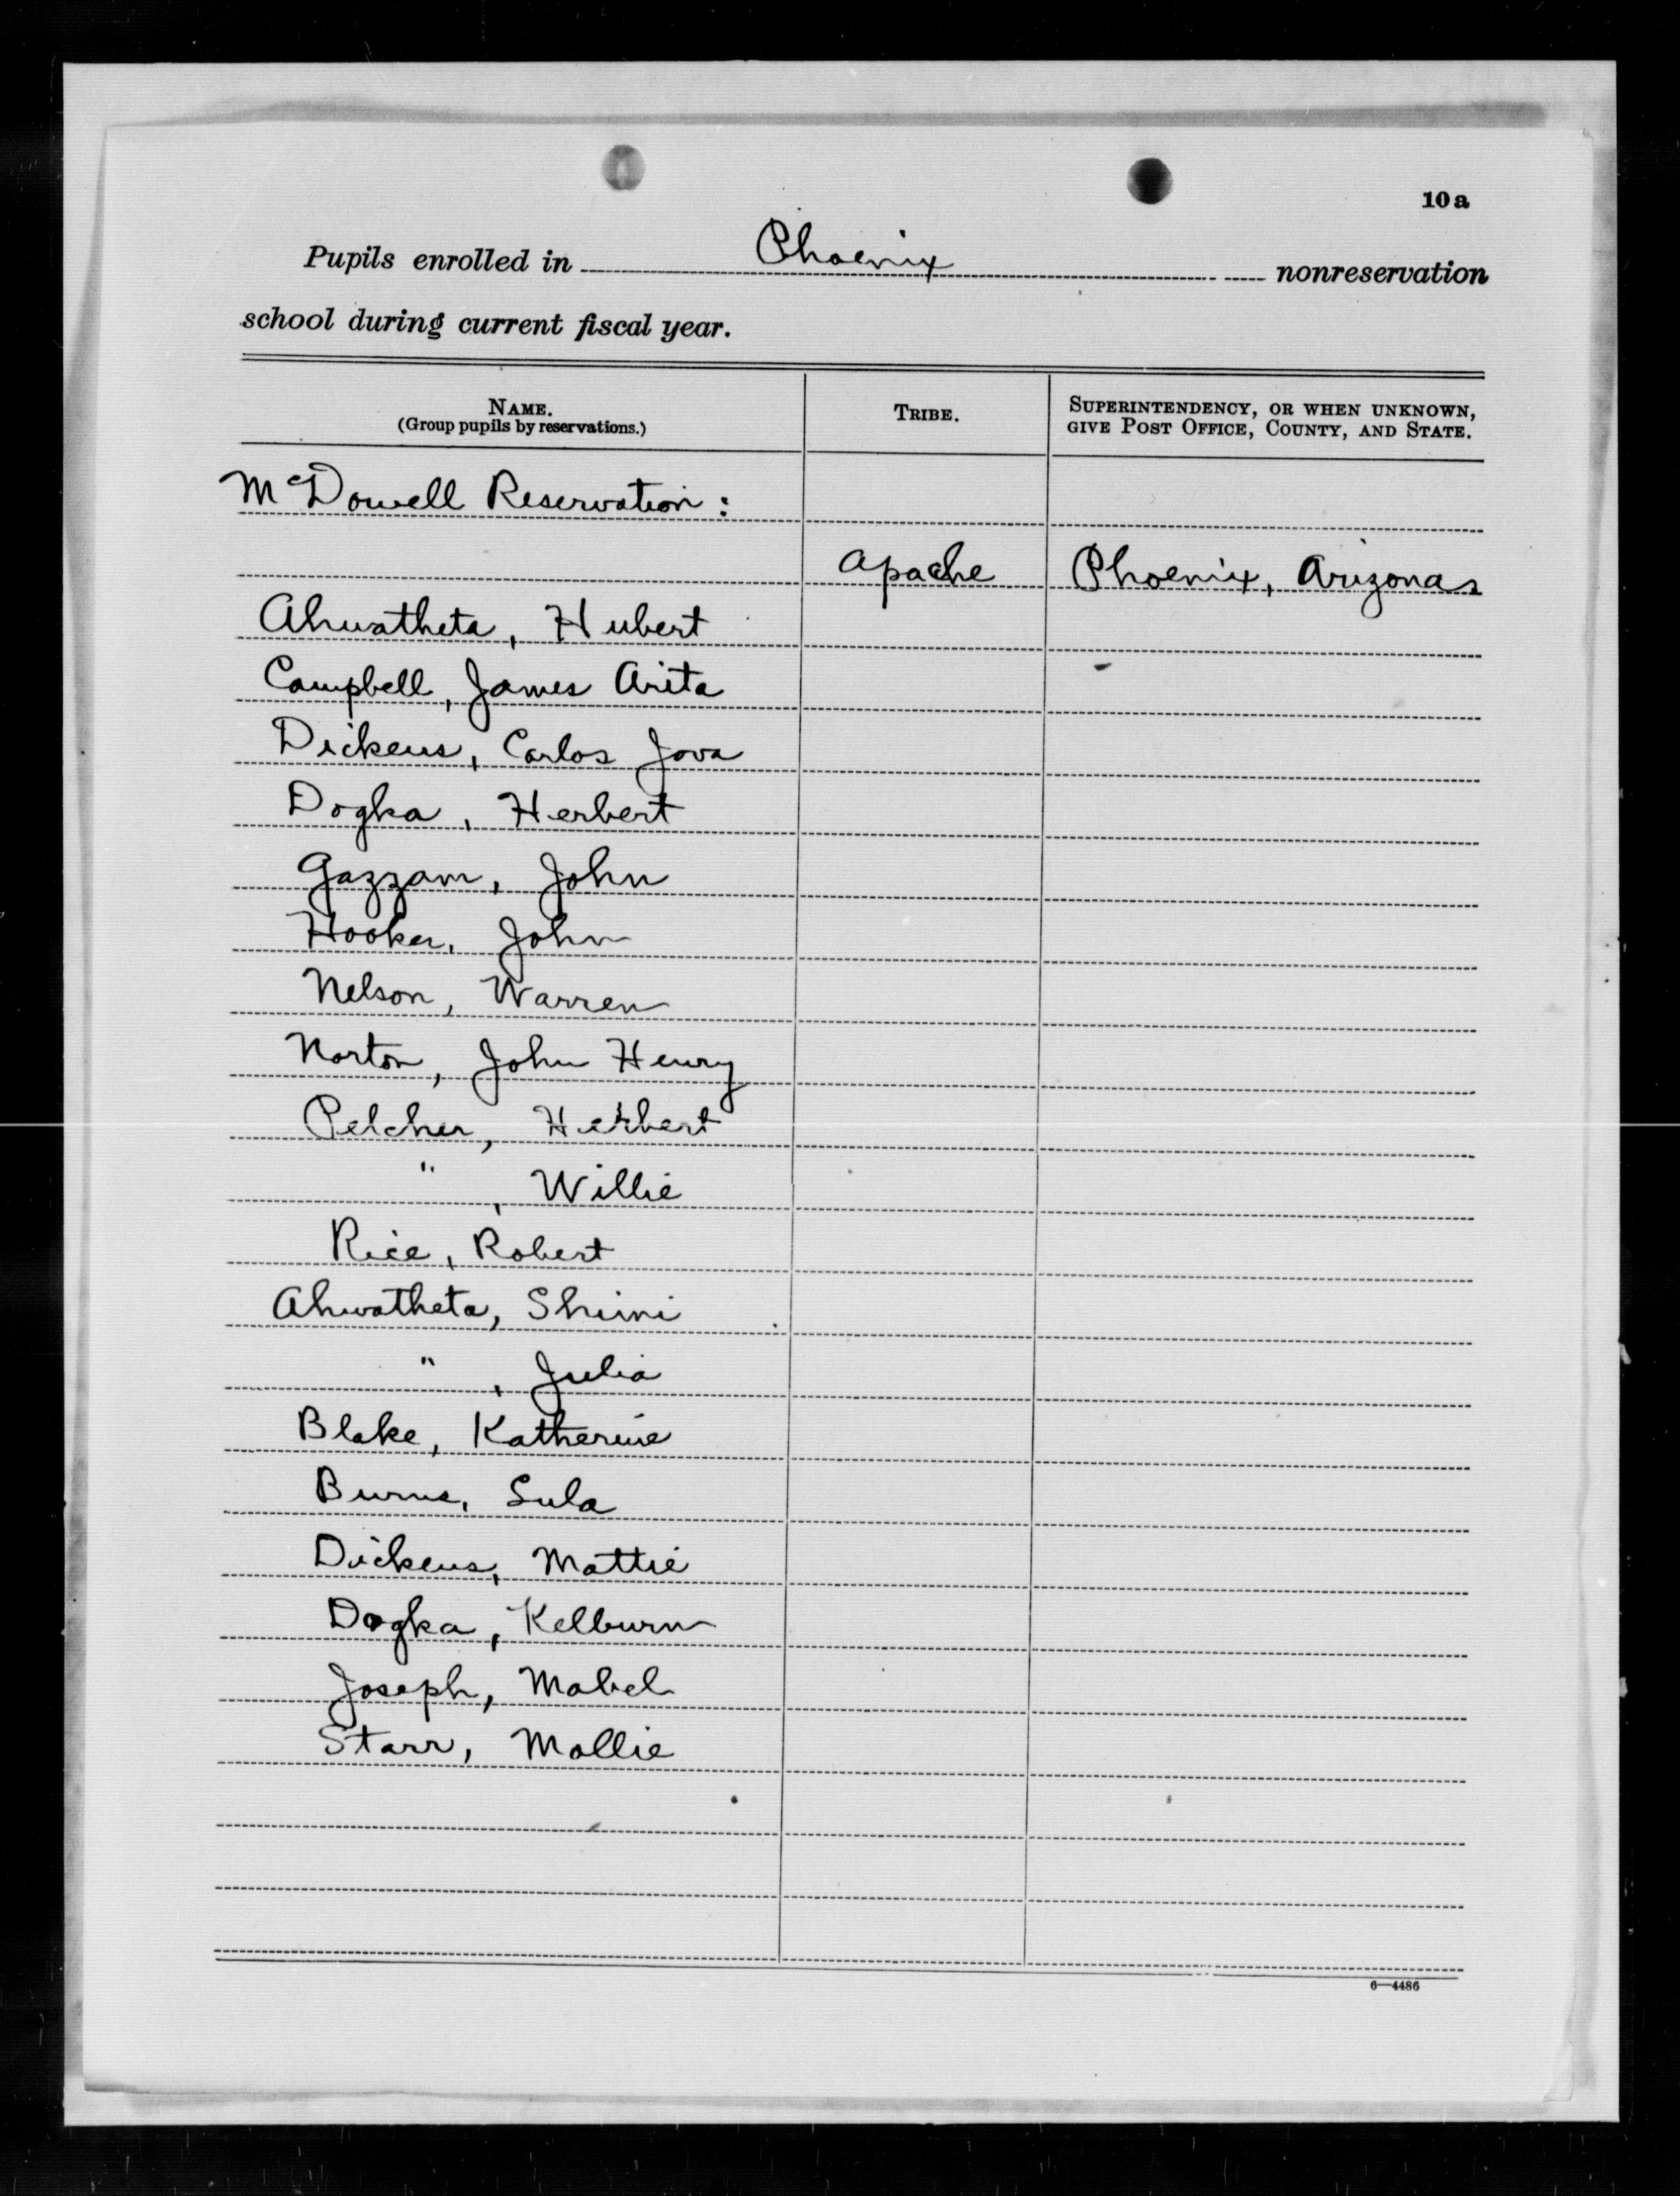 10a
Pupils enrolled in Phoenix nonreservation
school during current fiscal year.
NAME.
(Group pupils by reservations.)
TRIBE.
SUPERINTENDENCY, OR WHEN UNKNOWN,
GIVE POST OFFICE, COUNTY, AND STATE.
McDowell Reservation:
Apache Phoenix, Arizona,
Ahwatheta, Hubert
Campbell, James Arita
Dickens, Carlos Jova
Dogka, Herbert
Gazzam, John
Hooker, John
Nelson, Warren
Norton, John Henry
Pelcher, Herbert
" , Willie
Rice, Robert
Ahwatheta, Shimi
" , Julia
Blake, Katherine
Burns, Lula
Dickens, Mattie
Dogka, Kelburn
Joseph, Mabel
Starr, Mollie
6—4486